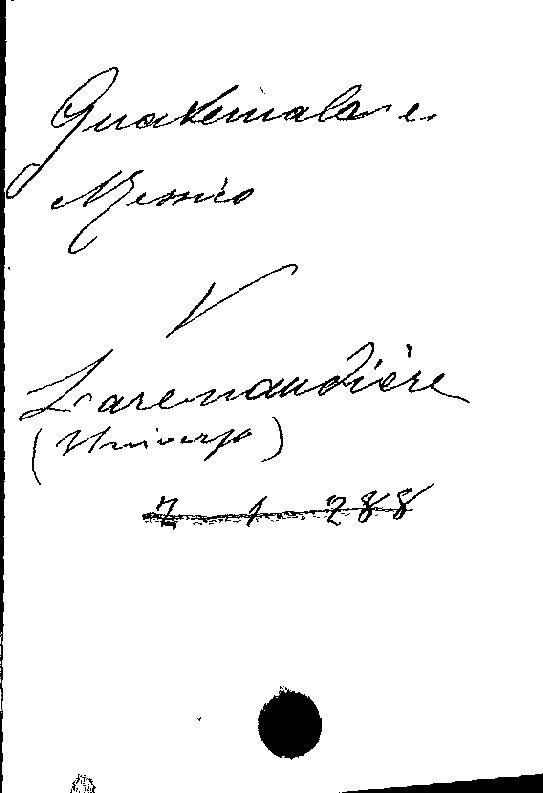 Guatemala e
Messico
V
Larenaudière
(Universo)
Z 1 288